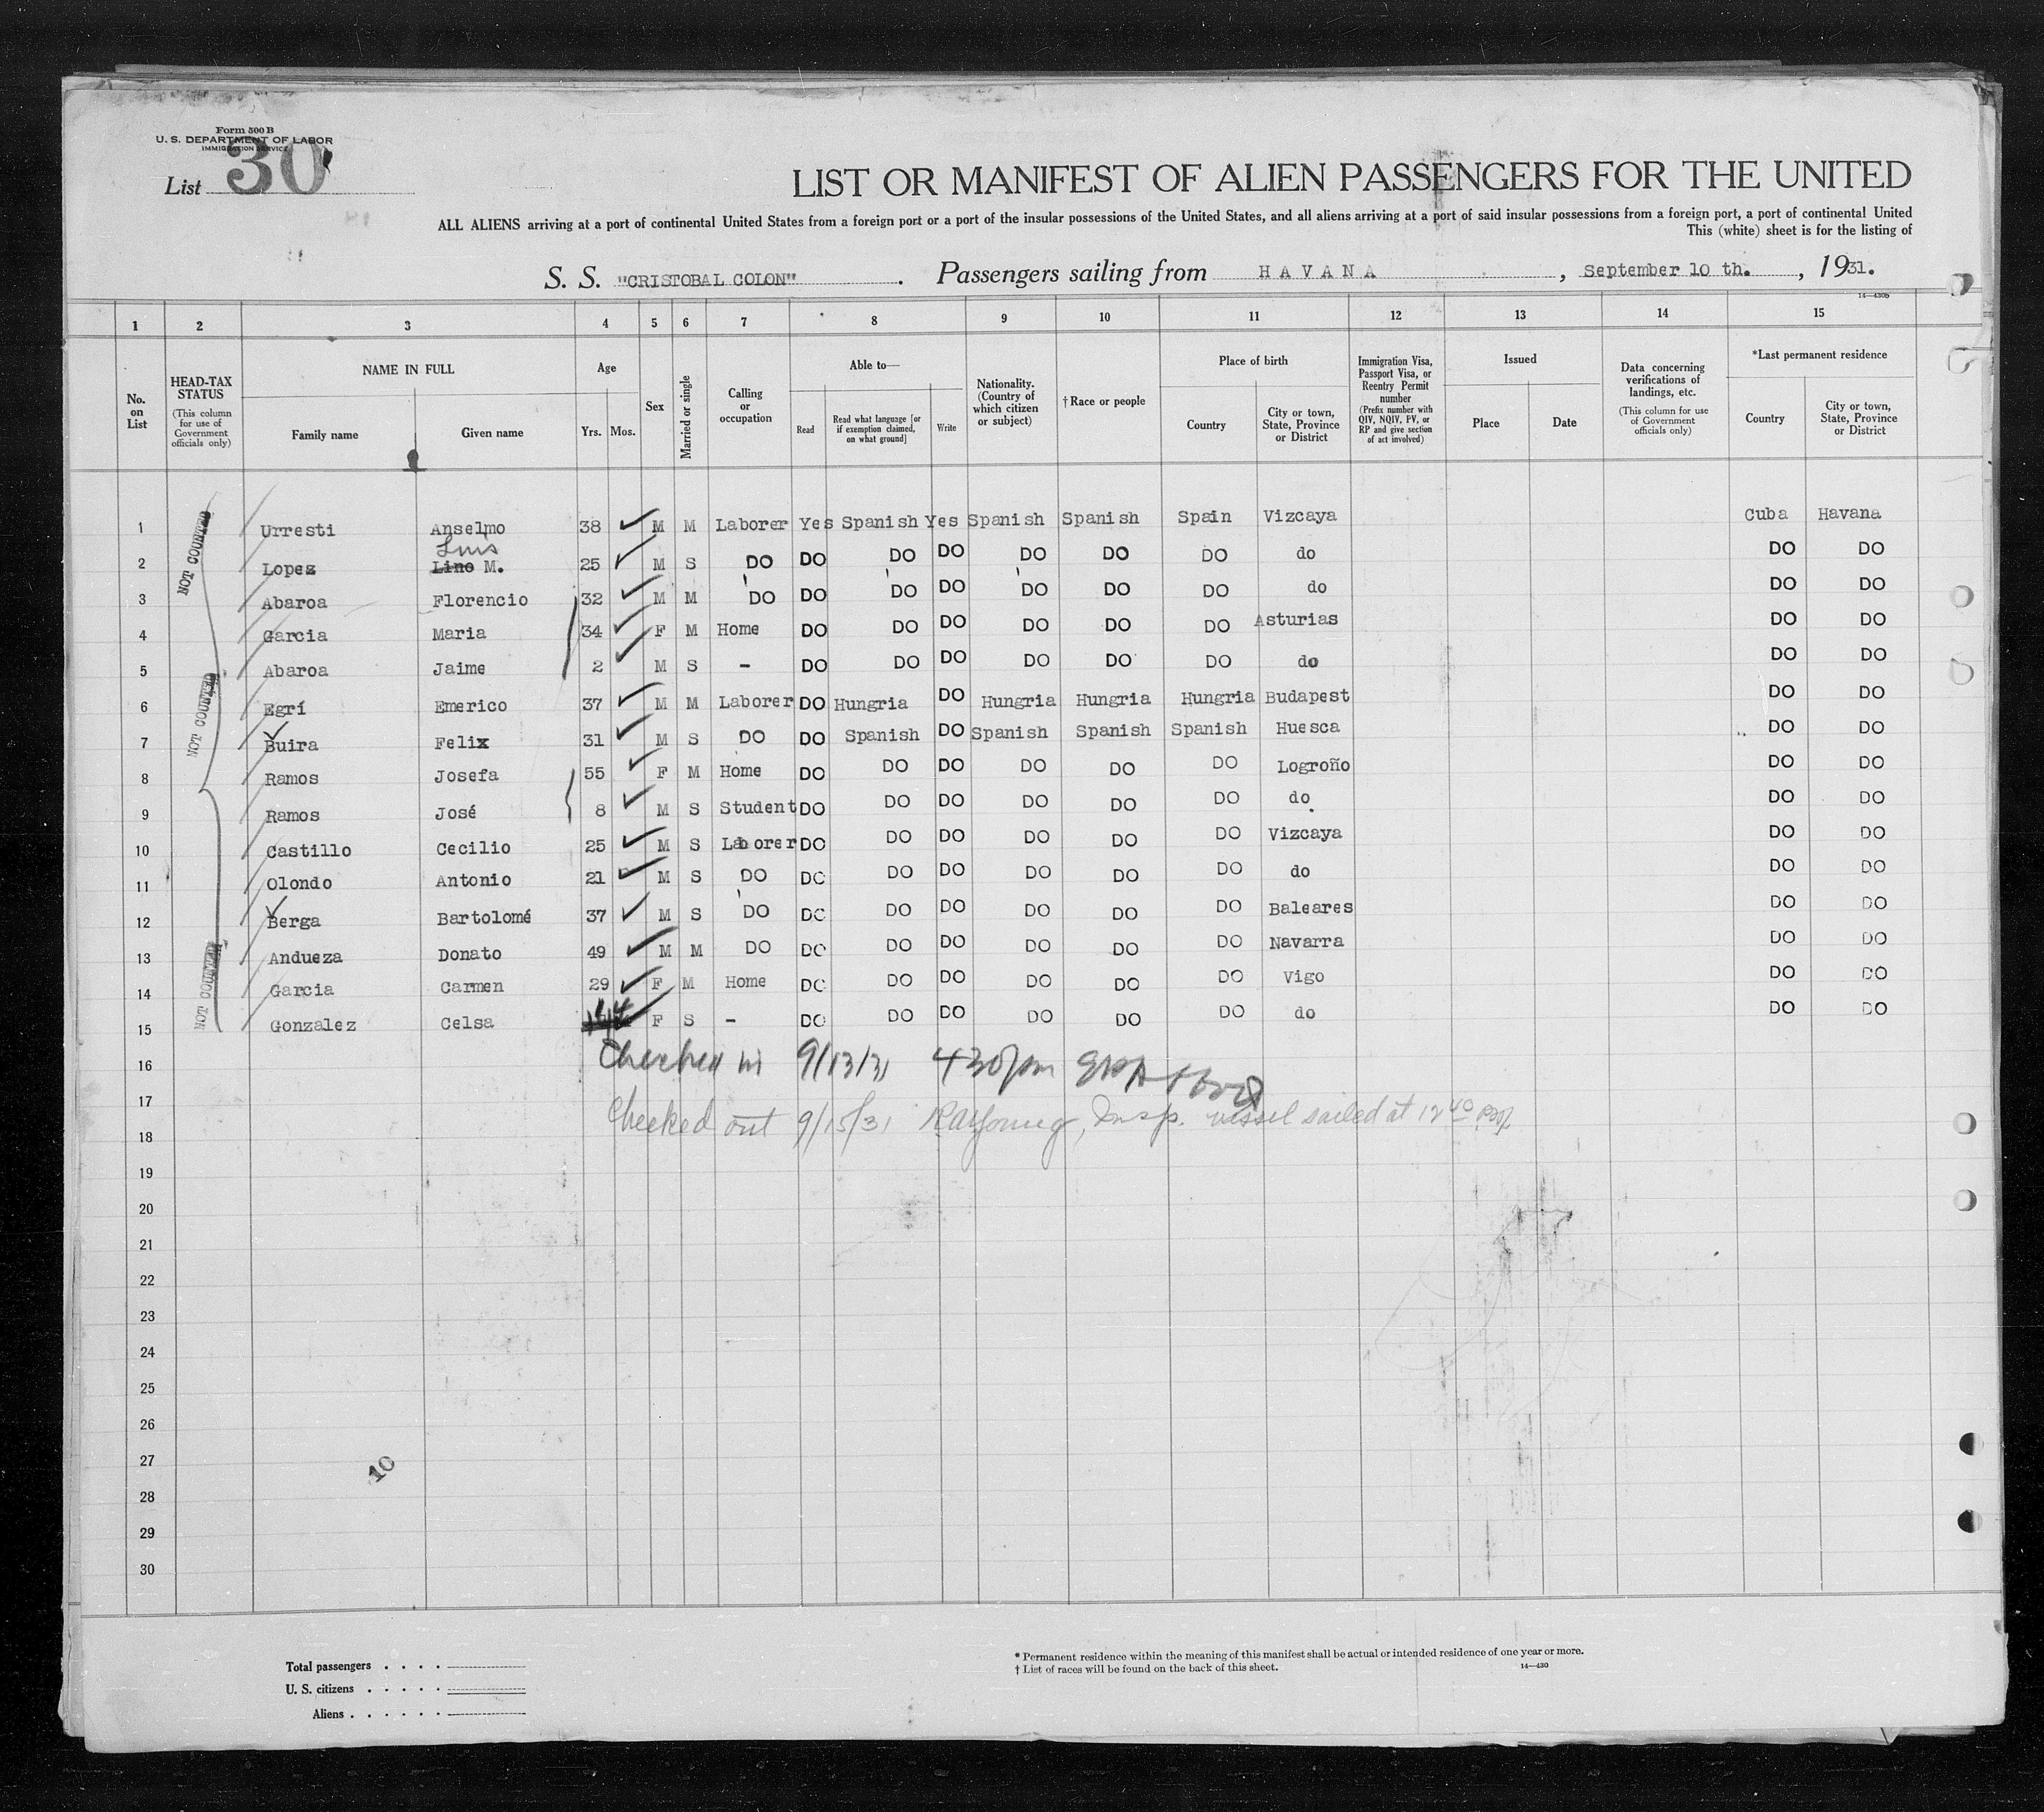 Form 500 B
U. S. DEPARTMENT OF LABOR
IMMIGRATION SERVICE
List 30
LIST OR MANIFEST OF ALIEN PASSENGERS FOR THE UNITED
ALL ALIENS arriving at a port of continental United States from a foreign port or a port of the insular possessions of the United States, and all aliens arriving at a port of said insular possessions from a foreign port, a port of continental United
This (white) sheet is for the listing of
S. S. "CRISTOBAL COLON". Passengers sailing from HAVANA, September 10 th., 1931.
14—430b
1 2 3 4 5 6 7 8 9 10 11 12 13 14 15
No. on List
HEAD-TAX STATUS (This column for use of Government officials only)
NAME IN FULL Family name Given name
Age Yrs. Mos.
Sex
Married or single
Calling or occupation
Able to— Read Read what language [or if exemption claimed, on what ground] Write
Nationality. (Country of which citizen or subject)
†Race or people
Place of birth Country City or town, State, Province or District
Immigration Visa, Passport Visa, or Reentry Permit number (Prefix number with QIV, NQIV, PV, or RP and give section of act involved)
Issued Place Date
Data concerning verifications of landings, etc. (This column for use of Government officials only)
*Last permanent residence Country City or town, State, Province or District
NOT COUNTED
NOT COUNTED
NOT COUNTED
1 Urresti Anselmo 38 M M Laborer Yes Spanish Yes Spanish Spanish Spain Vizcaya Cuba Havana
Luis
2 Lopez Lino M. 25 M S DO DO DO DO DO DO DO do DO DO
3 Abaroa Florencio 32 M M DO DO DO DO DO DO DO do DO DO
4 Garcia Maria 34 F M Home DO DO DO DO DO DO Asturias DO DO
5 Abaroa Jaime 2 M S - DO DO DO DO DO DO do DO DO
6 Egrí Emerico 37 M M Laborer DO Hungria DO Hungria Hungria Hungria Budapest DO DO
7 Buira Felix 31 M S DO DO Spanish DO Spanish Spanish Spanish Huesca DO DO
8 Ramos Josefa 55 F M Home DO DO DO DO DO DO Logroño DO DO
9 Ramos José 8 M S Student DO DO DO DO DO DO do DO DO
10 Castillo Cecilio 25 M S Laborer DO DO DO DO DO DO Vizcaya DO DO
11 Olondo Antonio 21 M S DO DO DO DO DO DO DO do DO DO
12 Berga Bartolomé 37 M S DO DO DO DO DO DO DO Baleares DO DO
13 Andueza Donato 49 M M DO DO DO DO DO DO DO Navarra DO DO
14 Garcia Carmen 29 F M Home DO DO DO DO DO DO Vigo DO DO
15 Gonzalez Celsa F S - DO DO DO DO DO DO do DO DO
16 Checked in 9/13/31 430pm
17
Checked out 9/15/31 RAYoung, Insp. vessel sailed at 12 40 pm
18
19
20
21
22
23
24
25
26
27
10
28
29
30
Total passengers . . . .
U. S. citizens . . . . .
Aliens . . . . . .
* Permanent residence within the meaning of this manifest shall be actual or intended residence of one year or more.
† List of races will be found on the back of this sheet.
14—430